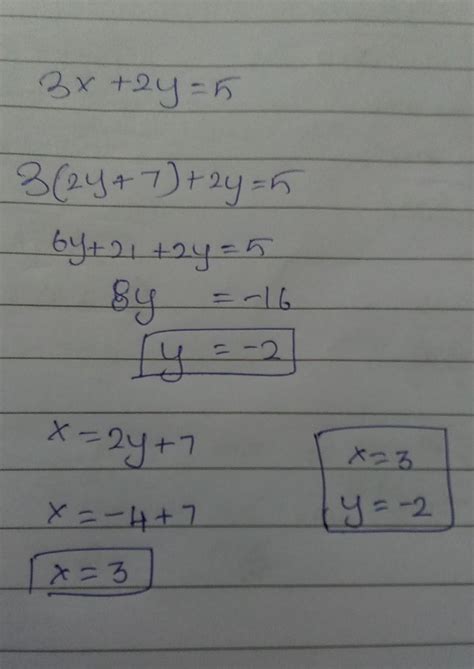 3x+2y=5
3(2y+7)+2y=5
6y+21+2y=5
8y =-16
y =-2
x=2y+7
x=-4+7
x=3
x=3
y=-2